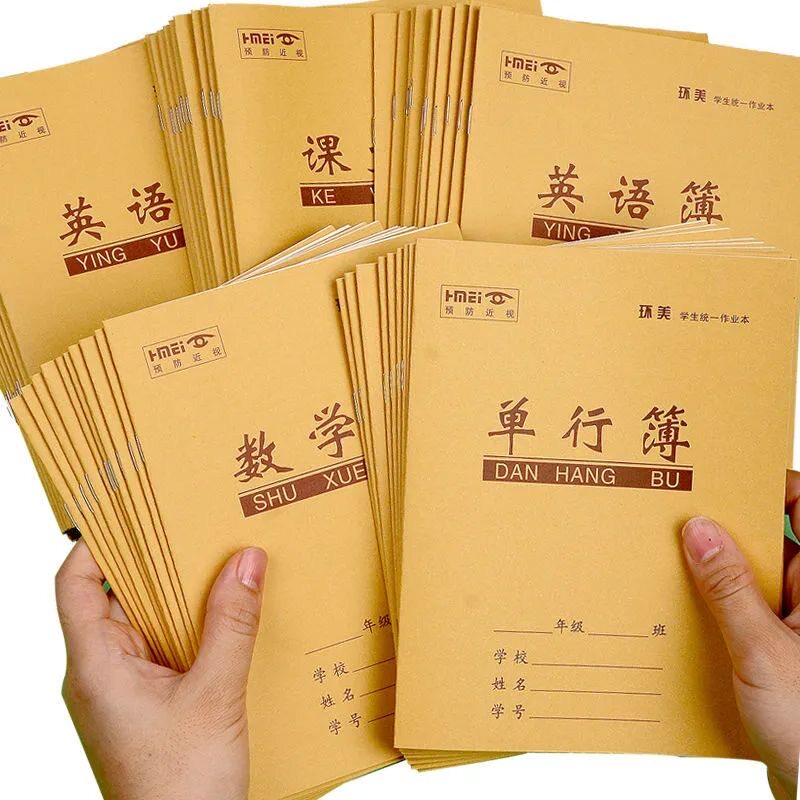 HMEi
预防近视
英语
YING YU
HMEi
预防近视
课
KE
HMEi
预防近视
环美 学生统一作业本
英语簿
YING YU
HMEi
预防近视
数学
SHU XUE
年级
学校
姓名
学号
HMEi
预防近视
环美 学生统一作业本
单行簿
DAN HANG BU
年级 班
学校
姓名
学号